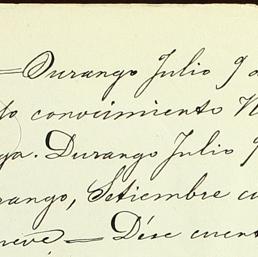 =Durango Julio 9 d
do conocimiento N
ga. Durango Julio 9
rango, Setiembre cu
nueve = Dése cuent